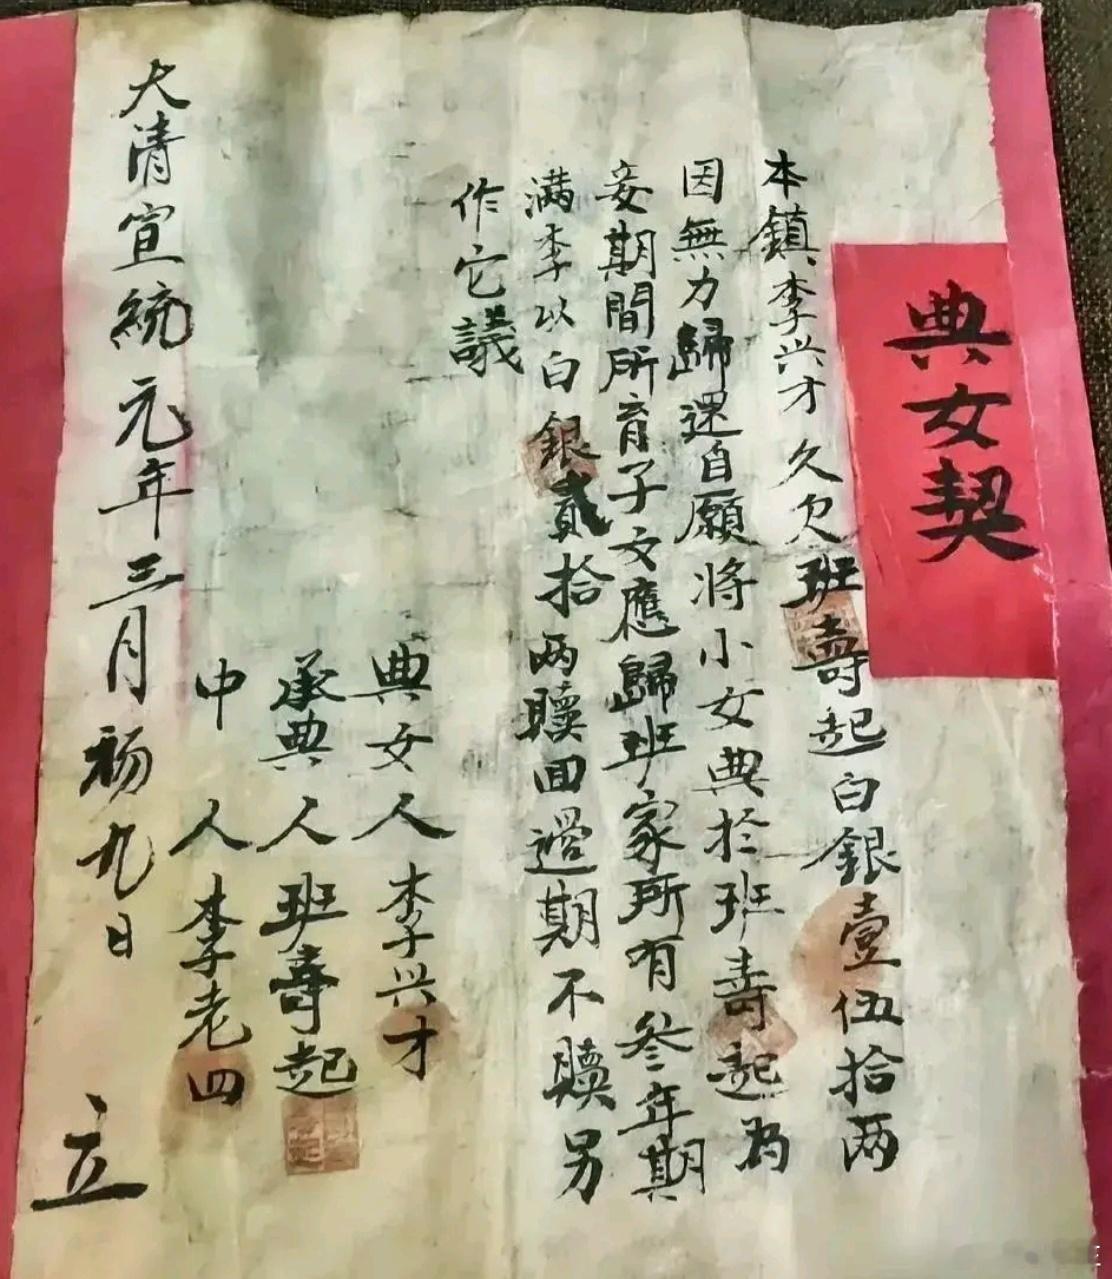 典女契
本鎮李兴才久欠班壽起白銀壹伍拾两
因無力歸還自願将小女典於班壽起為
妾期間所育子女應歸班家所有叄年期
满李以白銀貳拾两贖回過期不贖另
作它議
典女人李兴才
承典人班壽起
中人李老四
大清宣統元年三月初九日立